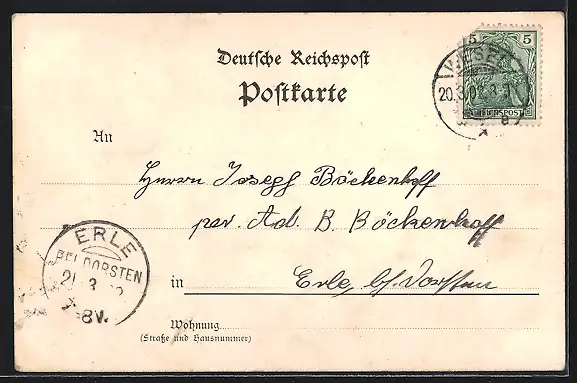 Deutsche Reichspost
Postkarte
5 5
WESEL
20.3.02. 8-9
REICHSPOST
An
Herrn Joseph Böckenhoff
per. Ad. B. Böckenhoff
in Erle, bei Dorsten
ERLE
BEI DORSTEN
21 3 02
8V.
Wohnung
(Straße und Hausnummer)